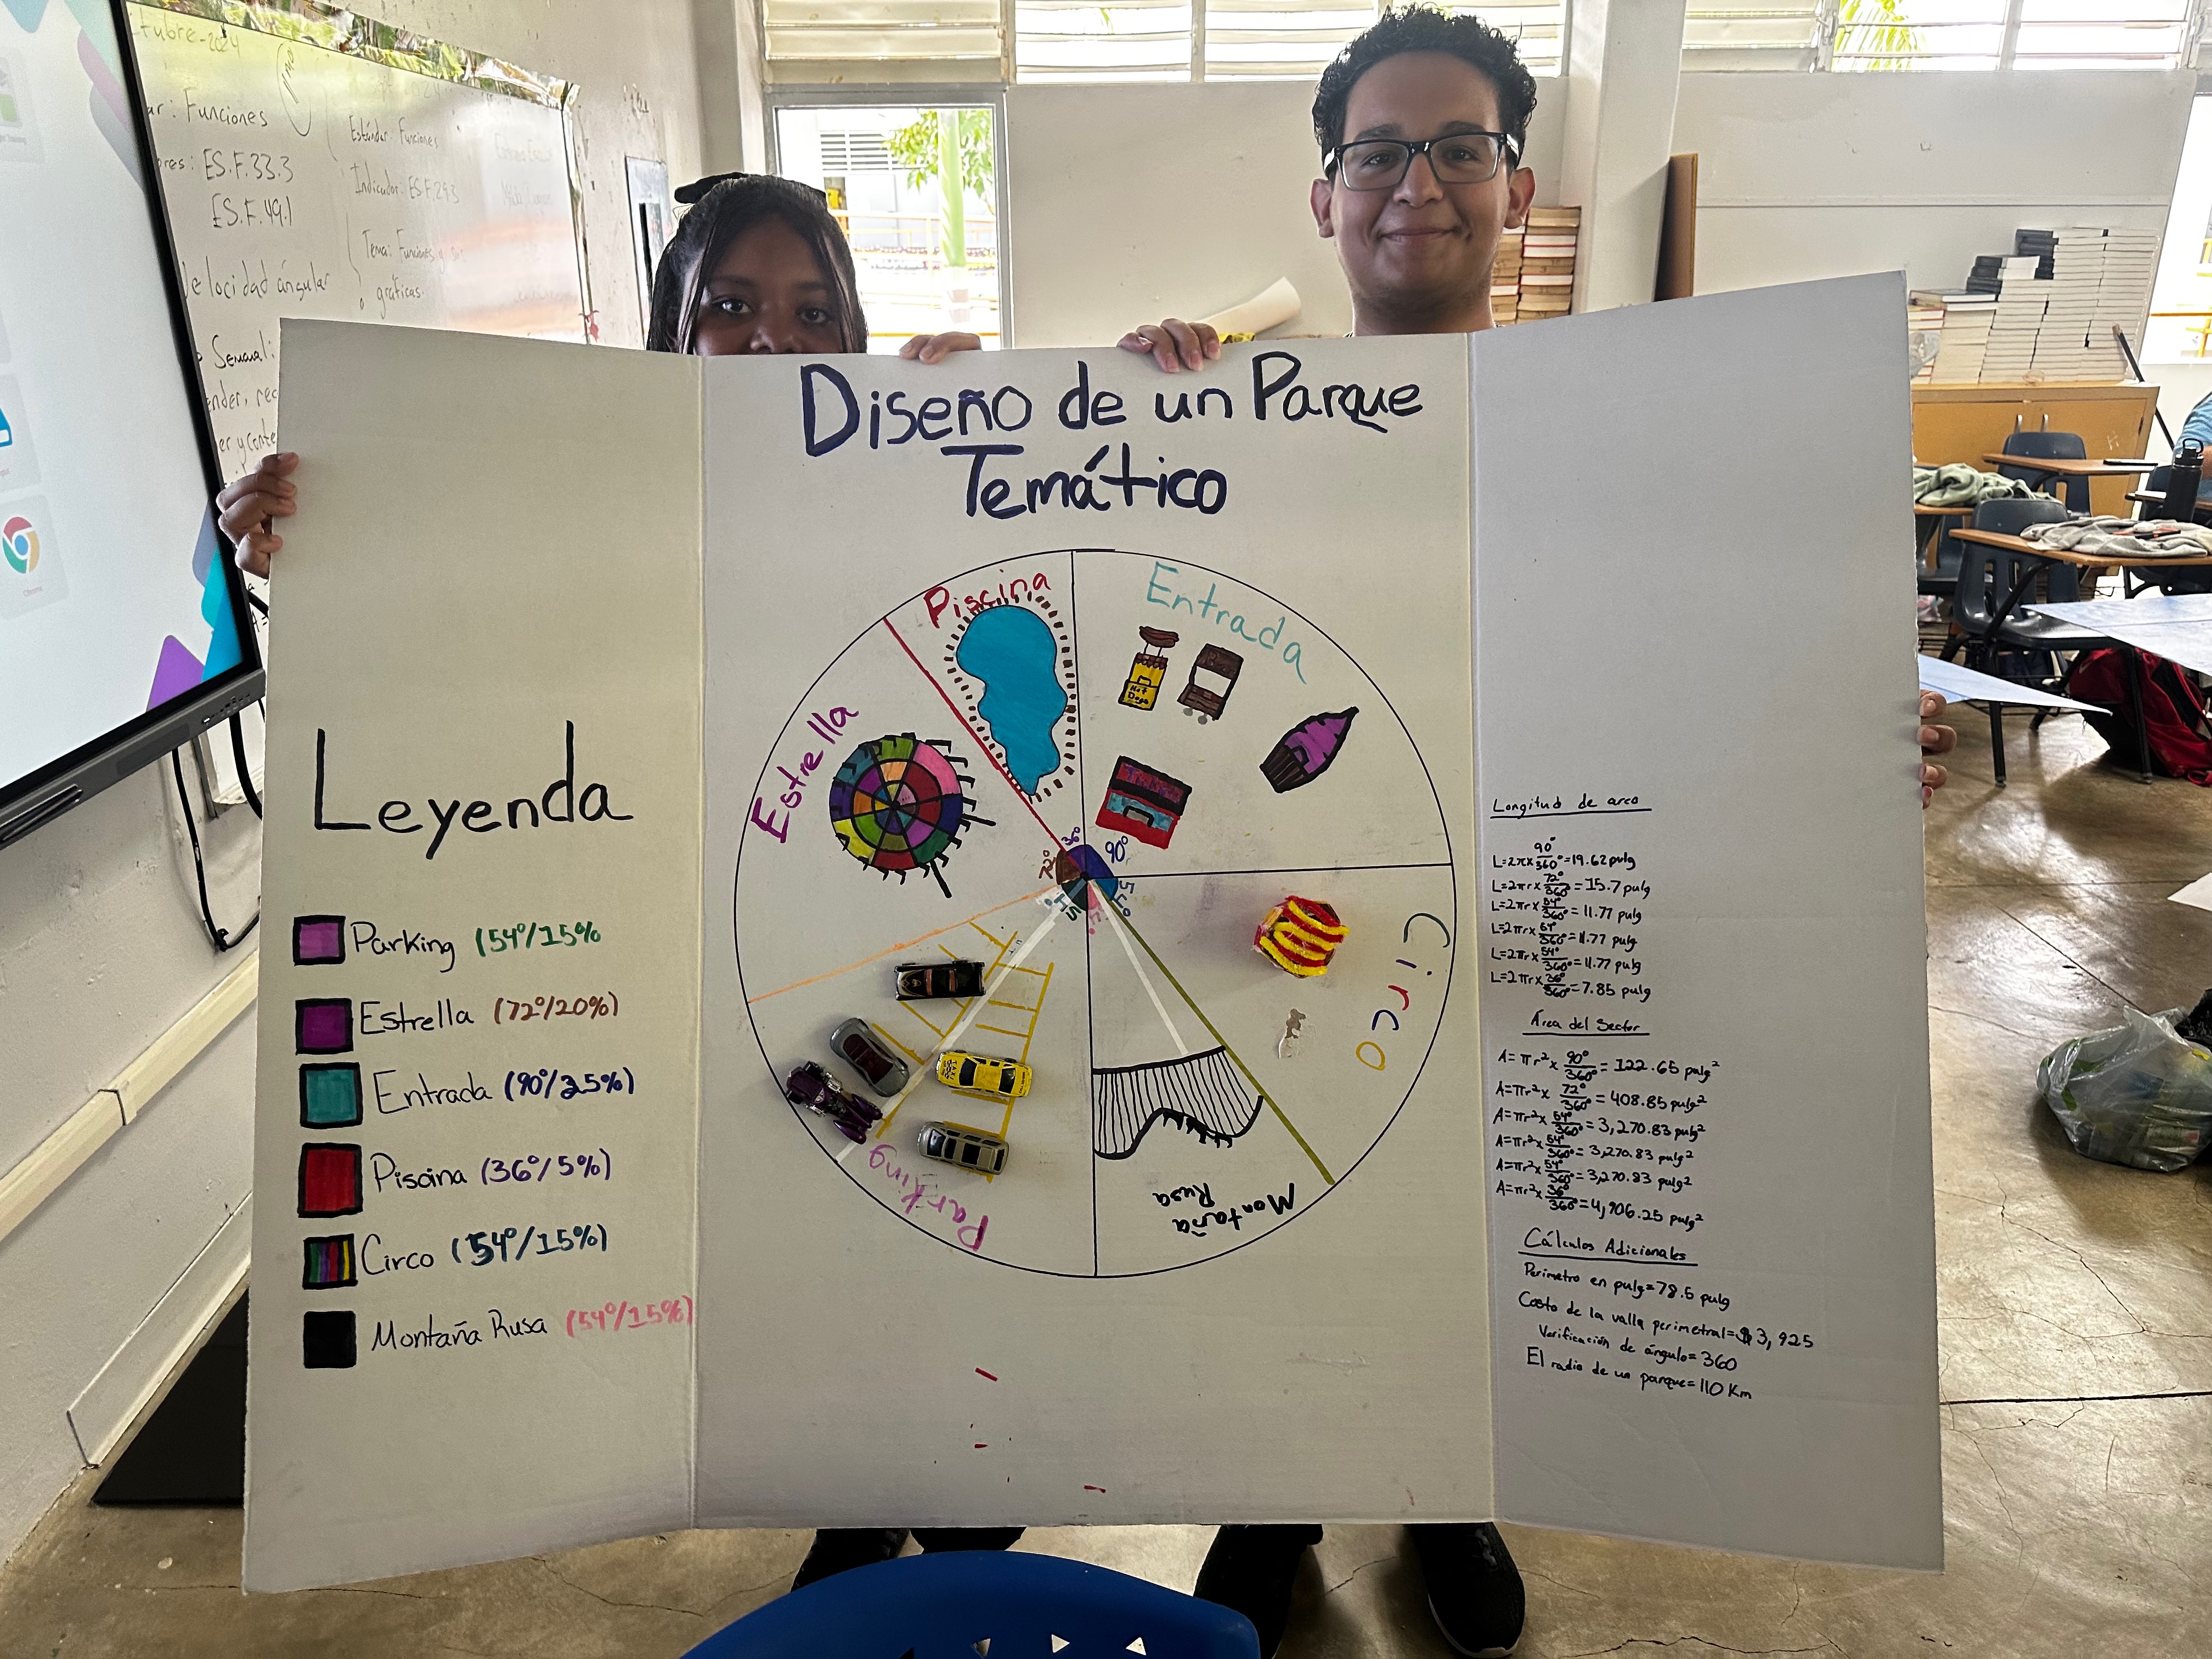 Funciones
ES.F.33.3
ES.F.49.1
Estándar: Funciones
Indicador: ES.F.29.3
Tema: Funciones y sus
gráficas
velocidad ángular
Semanal:
Chrome
Diseño de un Parque
Temático
Leyenda
Parking (54°/15%
Estrella (72°/20%)
Entrada (90°/25%)
Piscina (36°/5%)
Circo (54°/15%)
Montaña Rusa (54°/15%)
Piscina
Entrada
Hot
Dogs
Estrella
36°
90°
72°
54°
54°
Circo
Parking
Montaña
Rusa
Longitud de arco
L=2πx 90°/360° =19.62 pulg
L=2πr x 72°/360° = 15.7 pulg
L=2πr x 54°/360° = 11.77 pulg
L=2πr x 54°/360° = 11.77 pulg
L=2πr x 54°/360° = 11.77 pulg
L=2πr x 36°/360° = 7.85 pulg
Área del Sector
A= πr² x 90°/360° = 122.65 pulg²
A=πr² x 72°/360° = 408.85 pulg²
A=πr² x 54°/360° = 3,270.83 pulg²
A=πr² x 54°/360° = 3,270.83 pulg²
A=πr² x 54°/360° = 3,270.83 pulg²
A=πr² x 36°/360° = 4,906.25 pulg²
Cálculos Adicionales
Perimetro en pulg=78.5 pulg
Costo de la valla perimetral=$3,925
Verificación de ángulo= 360
El radio de un parque= 110 Km